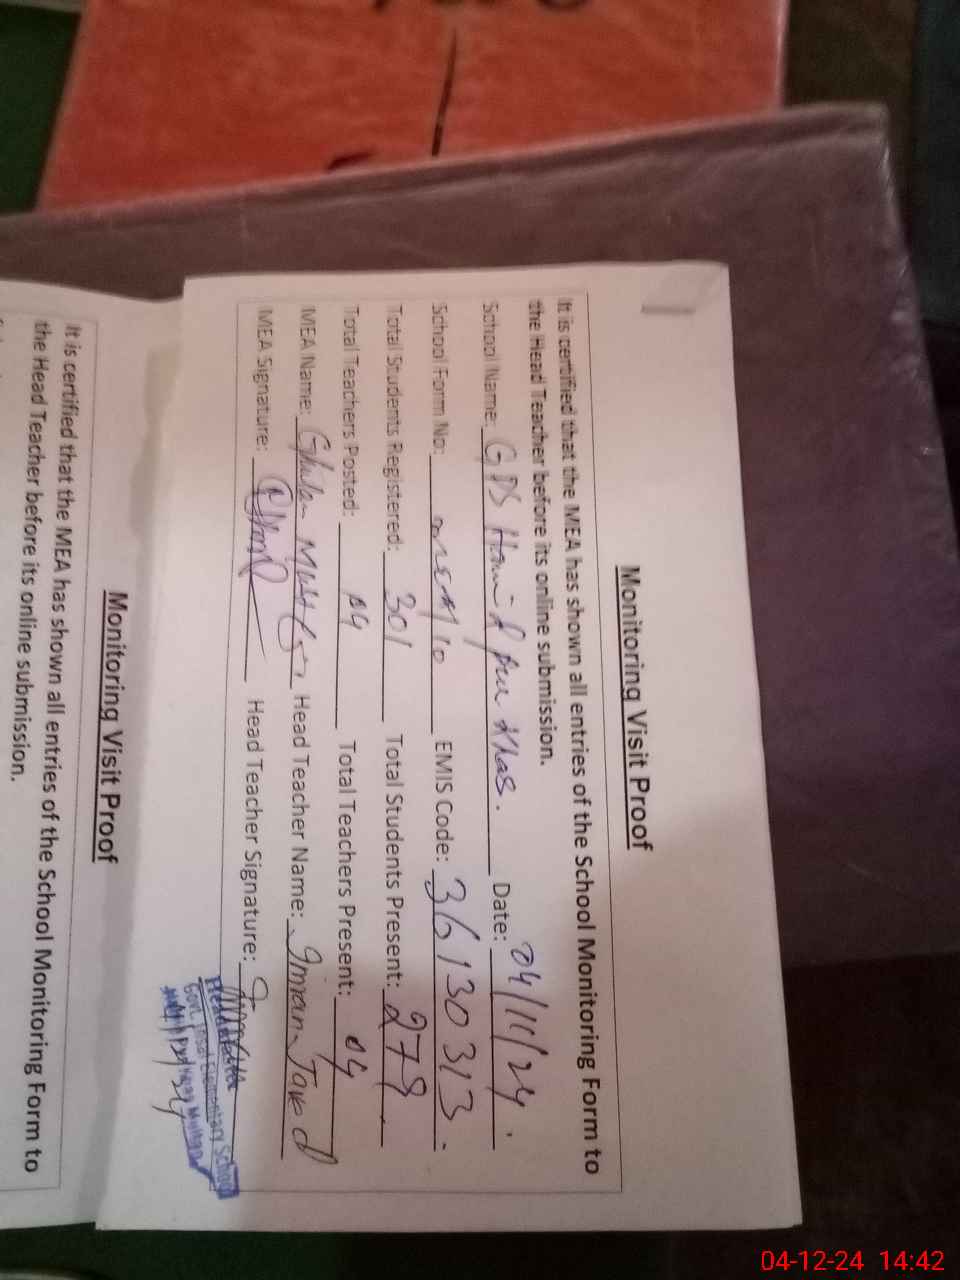 Monitoring Visit Proof
It is certified that the MEA has shown all entries of the School Monitoring Form to
the Head Teacher before its online submission.
School Name: GPS Hamid pur Khas. Date: 04/11/24.
School Form No: EMIS Code: 36130313.
Total Students Registered: 301 Total Students Present: 279
Total Teachers Posted: 09 Total Teachers Present: 09
MEA Name: Ghulam Head Teacher Name: Iman Javed
MEA Signature: Head Teacher Signature:
Govt. Elementary School
Multan
Monitoring Visit Proof
It is certified that the MEA has shown all entries of the School Monitoring Form to
the Head Teacher before its online submission.
04-12-24 14:42